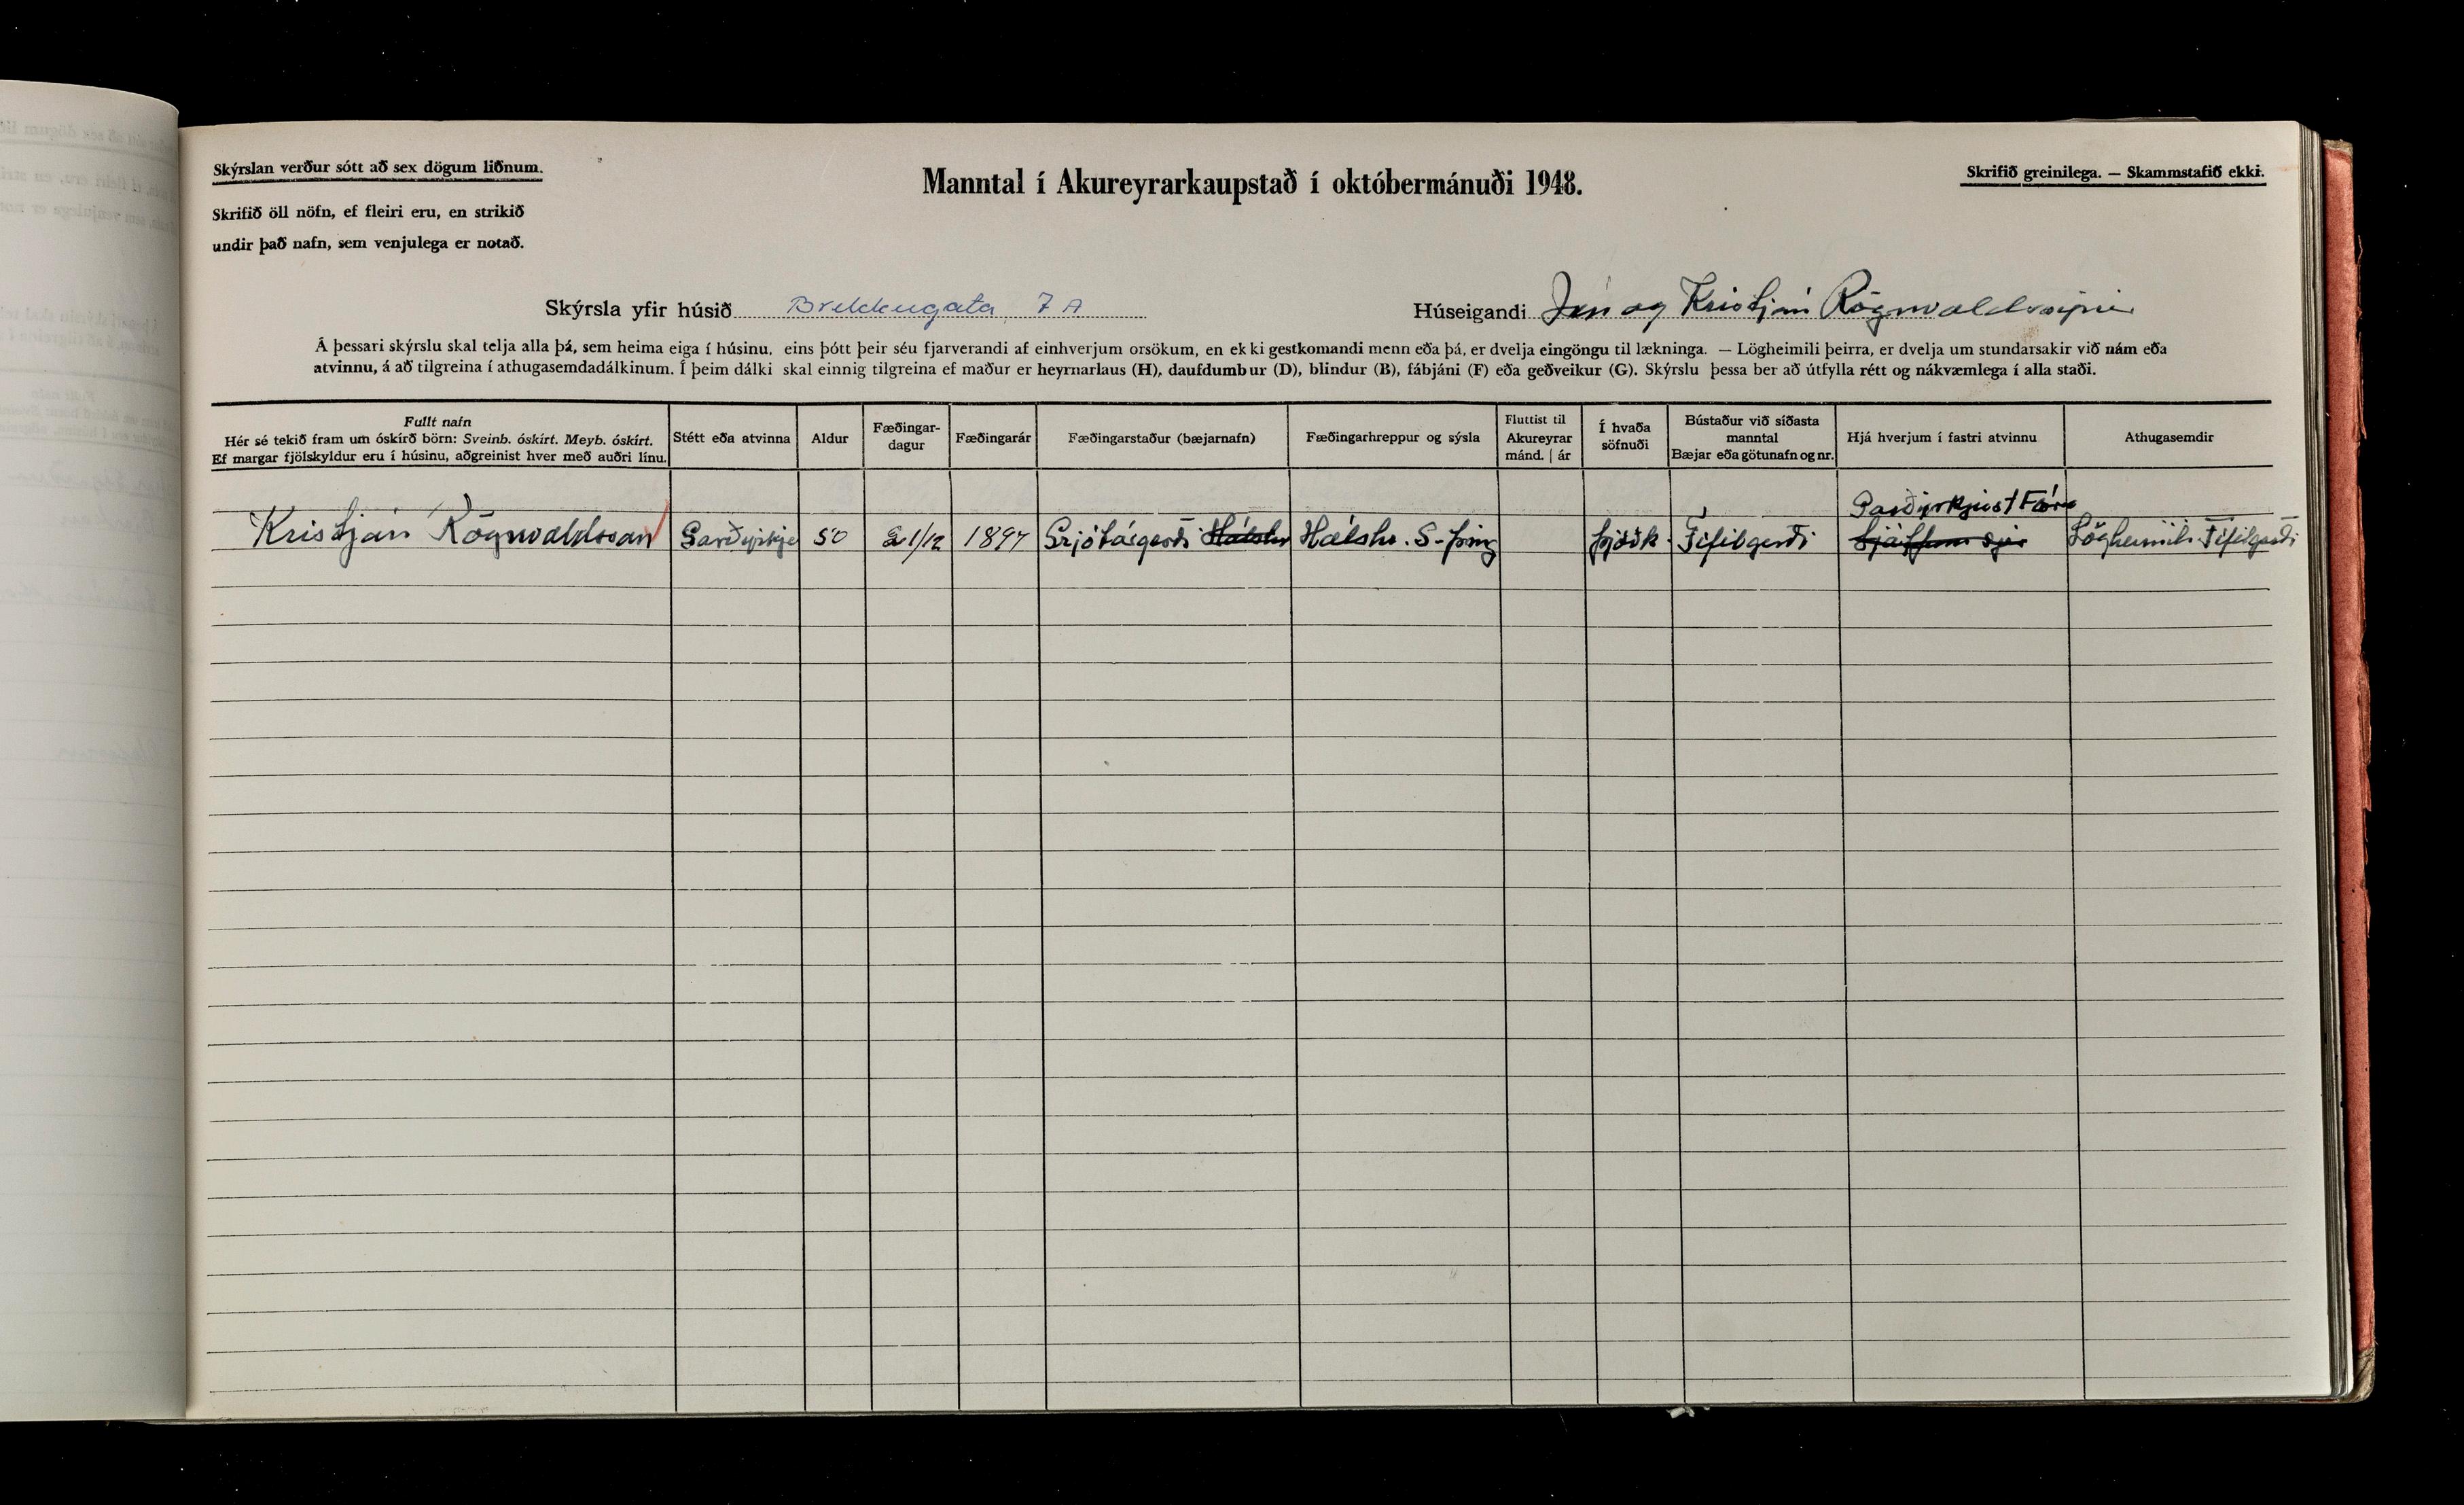 Skýrslan verður sótt að sex dögum liðnum.
Skrifið öll nöfn, ef fleiri eru, en strikið
undir það nafn, sem venjulega er notað.
Manntal í Akureyrarkaupstað í októbermánuði 1948.
Skrifið greinilega. — Skammstafið ekki.
Skýrsla yfir húsið Brekkugata 7 A
Húseigandi Jón og Kristján Rögnvaldssynir
Á þessari skýrslu skal telja alla þá, sem heima eiga í húsinu, eins þótt þeir séu fjarverandi af einhverjum orsökum, en ekki gestkomandi menn eða þá, er dvelja eingöngu til lækninga. — Lögheimili þeirra, er dvelja um stundarsakir við nám eða
atvinnu, á að tilgreina í athugasemdadálkinum. Í þeim dálki skal einnig tilgreina ef maður er heyrnarlaus (H), daufdumbur (D), blindur (B), fábjáni (F) eða geðveikur (G). Skýrslu þessa ber að útfylla rétt og nákvæmlega í alla staði.
Fullt nafn
Hér sé tekið fram um óskírð börn: Sveinb. óskírt. Meyb. óskírt.
Ef margar fjölskyldur eru í húsinu, aðgreinist hver með auðri línu.
Stétt eða atvinna
Aldur
Fæðingar-
dagur
Fæðingarár
Fæðingarstaður (bæjarnafn)
Fæðingarhreppur og sýsla
Fluttist til
Akureyrar
mánd. | ár
Í hvaða
söfnuði
Bústaður við síðasta
manntal
Bæjar eða götunafn og nr.
Hjá hverjum í fastri atvinnu
Athugasemdir
Kristján Rögnvaldsson Garðyrkju 50 21/12 1897 Grjótárgerði Hálshr Hálshr. S-Þing Þjóðk. Fífilgerði Lögheimili Fífilgerði